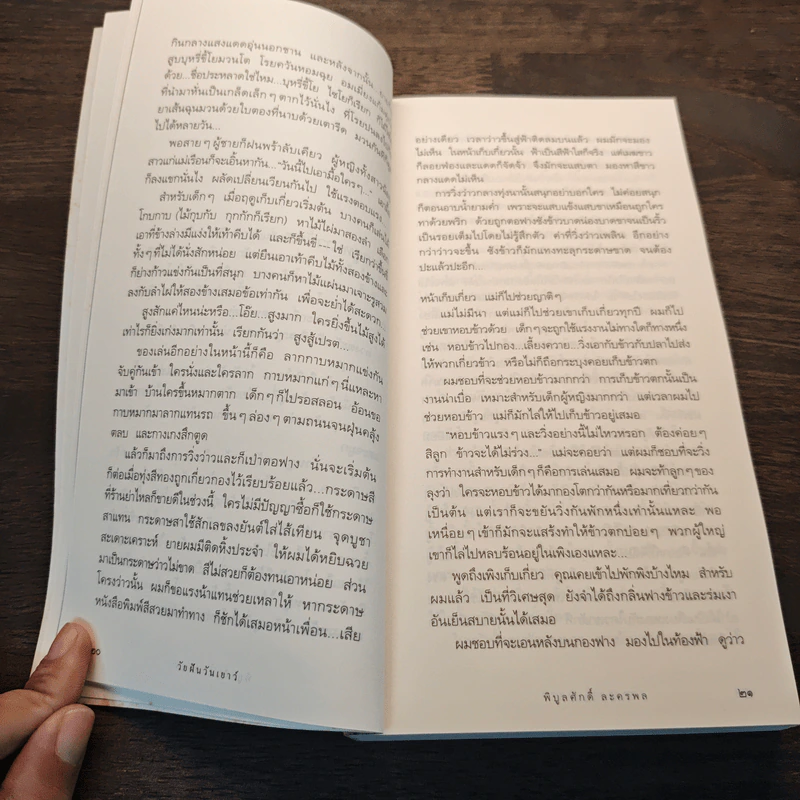 กินกลางแสงแดดอุ่นนอกชาน และหลังจากนั้น
สูบบุหรี่ขี้โยมวนโต โรยควันหอมฉุย อมเมี่ยง
ด้วย...ชื่อประหลาดใช่ไหม...บุหรี่ขี้โย ไชโยก็เรียก
ที่นำมาหั่นเป็นเกล็ดเล็กๆ ตากไว้นั่นไง ที่โรยปน
ยาเส้นฉุนมวนด้วยใบตองที่นาบด้วยเตารีด มวนคืน
ไปได้หลายวัน...
พอสายๆ ผู้ชายก็ฝนพร้าลับเคียว ผู้หญิงทั้งสาว
สาวแก่แม่เรือนก็จะเอิ้นหากัน..."วันนี้ไปเอามื้อใครๆ..."
ก็ลงแขกนั่นไง ผลัดเปลี่ยนเวียนกันไป ใช้แรงตอบแรง
สำหรับเด็กๆ เมื่อฤดูเก็บเกี่ยวเริ่มต้น บางคน
โกบกาบ (ไม้กุบกับ กุกกักก็เรียก) หาไม้ไผ่มาสองลำ
เอาที่ข้างล่างมีแง่งให้เท้าคีบได้ และก็ขึ้นขี่---ใช่ เรียกว่าขี่
ทั้งๆ ที่ไม่ได้นั่งสักหน่อย แต่ยืนเอาเท้าคีบไม้ทั้งสองข้าง
ก็ย่างก้าวแข่งกันเป็นที่สนุก บางคนก็หาไม้แผ่นมาเจาะรูสวม
ลงกับลำไผ่ให้สองข้างเสมอข้อเท่ากัน เพื่อจะย่ำได้สะดวก
สูงสักแค่ไหนน่ะหรือ...โอ๊ย...สูงมาก ใครยิ่งขึ้นไม้สูงได้
เท่าไรก็ยิ่งเก่งมากเท่านั้น เรียกกันว่า สูงสู้เปรต...
ของเล่นอีกอย่างในหน้านี้ก็คือ ลากกาบหมากแข่งกัน
จับคู่กันเข้า ใครนั่งและใครลาก กาบหมากแก่ๆ นี่แหละหา
มาเข้า บ้านใครขึ้นหมากตาก เด็กๆ ก็ไปรอสลอน อ้อนขอ
กาบหมากมาลากแทนรถ ขึ้นๆ ล่องๆ ตามถนนจนฝุ่นคลุ้ง
ตลบ และกางเกงสึกตูด
แล้วก็มาถึงการวิ่งว่าวและก็เป่าตอฟาง นั่นจะเริ่มต้น
ก็ต่อเมื่อทุ่งสีทองถูกเกี่ยวกองไว้เรียบร้อยแล้ว...กระดาษสี
ที่ร้านย่าไหลก็ขายดีในช่วงนี้ ใครไม่มีปัญญาซื้อก็ใช้กระดาษ
สาแทน กระดาษสาใช้สักเลขลงยันต์ใส่ไส้เทียน จุดบูชา
สะเดาะเคราะห์ ยายผมมีติดหิ้งประจำ ให้ผมได้หยิบฉวย
มาเป็นกระดาษว่าวไม่ขาด สีไม่สวยก็ต้องทนเอาหน่อย ส่วน
โครงว่าวนั้น ผมก็ขอแรงน้าแทนช่วยเหลาให้ หากกระดาษ
หนังสือพิมพ์สีสวยมาทำหาง ก็ชักได้เสมอหน้าเพื่อน...เสีย
๐
วัยฝันวันเยาว์
อย่างเดียว เวลาว่าวขึ้นสู่ฟ้าติดลมบนแล้ว ผมมักจะมอง
ไม่เห็น ในหน้าเก็บเกี่ยวนั้น ฟ้าเป็นสีฟ้าใสก็จริง แต่เมฆขาว
ก็ลอยฟ่องและแดดก็จัดจ้า จึงมักจะแสบตา มองหาสีขาว
กลางแดดไม่เห็น
การวิ่งว่าวกลางทุ่งนานั้นสนุกอย่าบอกใคร ไม่ค่อยสนุก
ก็ตอนอาบน้ำยามค่ำ เพราะจะแสบแข้งแสบขาเหมือนถูกใคร
ทาด้วยพริก ด้วยถูกตอฟางซังข้าวบาดน่องบาดขาจนเป็นริ้ว
เป็นรอยเต็มไปโดยไม่รู้สึกตัว ค่าที่วิ่งว่าวเพลิน อีกอย่าง
กว่าว่าวจะขึ้น ซังข้าวก็มักแทงทะลุกระดาษขาด จนต้อง
ปะแล้วปะอีก...
หน้าเก็บเกี่ยว แม่ก็ไปช่วยญาติๆ
แม่ไม่มีนา แต่แม่ก็ไปช่วยเขาเก็บเกี่ยวทุกปี ผมก็ไป
ช่วยเขาหอบข้าวด้วย เด็กๆ จะถูกใช้แรงงานไม่ทางใดก็ทางหนึ่ง
เช่น หอบข้าวไปกอง...เลี้ยงควาย...วิ่งเอากับข้าวกับปลาไปส่ง
ให้พวกเกี่ยวข้าว หรือไม่ก็ถือกระบุงคอยเก็บข้าวตก
ผมชอบที่จะช่วยหอบข้าวมากกว่า การเก็บข้าวตกนั้นเป็น
งานน่าเบื่อ เหมาะสำหรับเด็กผู้หญิงมากกว่า แต่เวลาผมไป
ช่วยหอบข้าว แม่ก็มักไล่ให้ไปเก็บข้าวอยู่เสมอ
"หอบข้าวแรงๆ และวิ่งอย่างนี้ไม่ไหวหรอก ต้องค่อยๆ
สิลูก ข้าวจะได้ไม่ร่วง..." แม่จะคอยว่า แต่ผมก็ชอบที่จะวิ่ง
การทำงานสำหรับเด็กๆ ก็คือการเล่นเสมอ ผมจะท้าลูกๆ ของ
ลุงว่า ใครจะหอบข้าวได้มากองโตกว่ากันหรือมากเที่ยวกว่ากัน
เป็นต้น แต่เราก็จะขยันวิ่งกันพักหนึ่งเท่านั้นแหละ พอ
เหนื่อยๆ เข้าก็มักจะแสร้งทำให้ข้าวตกบ่อยๆ พวกผู้ใหญ่
เขาก็ไล่ไปหลบร้อนอยู่ในเพิงเองแหละ...
พูดถึงเพิงเก็บเกี่ยว คุณเคยเข้าไปพักพิงบ้างไหม สำหรับ
ผมแล้ว เป็นที่วิเศษสุด ยังจำได้ถึงกลิ่นฟางข้าวและร่มเงา
อันเย็นสบายนั้นได้เสมอ
ผมชอบที่จะเอนหลังบนกองฟาง มองไปในท้องฟ้า ดูว่าว
พิบูลศักดิ์ ละครพล
๒๑